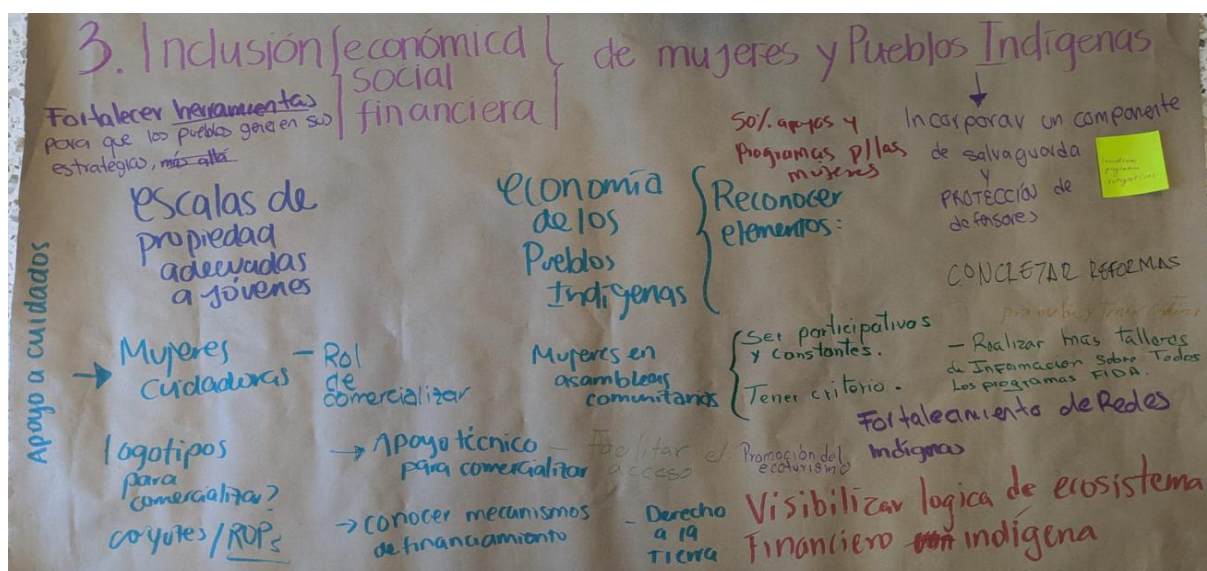 3. Inclusión económica
social
financiera
de mujeres y Pueblos Indígenas
Fortalecer herramientas
para que los pueblos generen sus
estrategias, más allá
50% apoyos y
programas p/las
mujeres
Incorporar un componente
de salvaguarda
y
PROTECCIÓN de
defensores
escalas de
propiedad
adecuadas
a jóvenes
economía
de los
Pueblos
Indígenas
Reconocer
elementos:
CONCRETAR REFORMAS
Apoyo a cuidados
Mujeres
cuidadoras
- Rol
de
comercializar
Mujeres en
asambleas
comunitarias
Ser participativos
y constantes.
Tener criterio.
- Realizar mas talleres
de Infamación Sobre Todos
Los programas FIDA.
Fortalecimiento de Redes
Indígenas
logotipos
para
comercializar?
→ Apoyo técnico
para comercializar
- Facilitar el
acceso
Promoción del
ecoturismo
coyotes / ROPs
→ conocer mecanismos
de financiamiento
- Derecho
a la
Tierra
Visibilizar logica de ecosistema
Financiero indígena